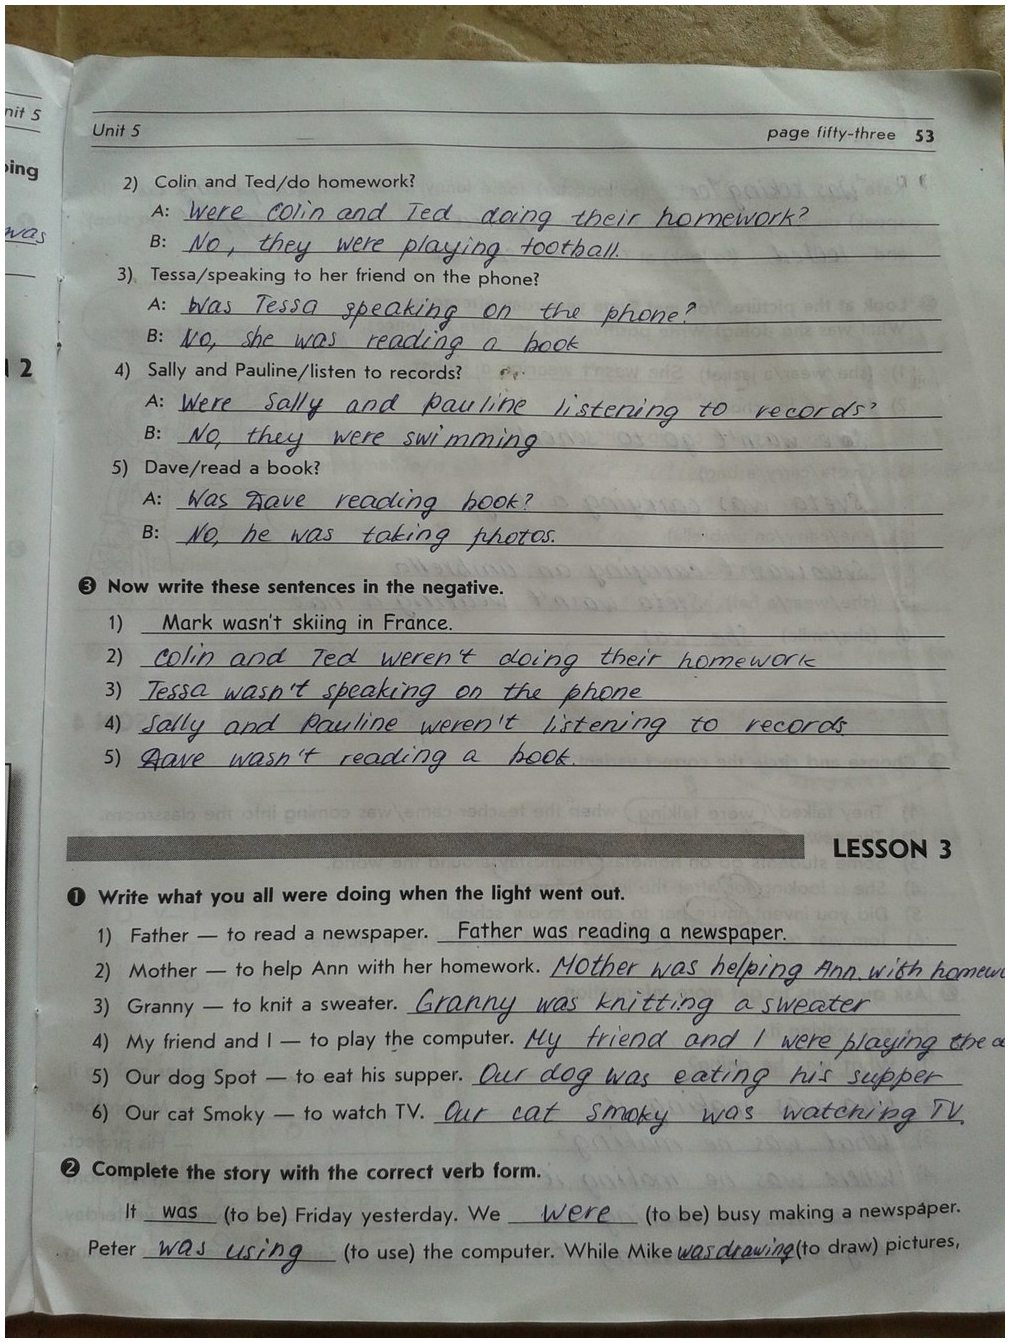 nit 5
Unit 5 page fifty-three 53
ing
2) Colin and Ted/do homework?
A: Were Colin and Ted doing their homework?
was
B: No, they were playing football.
3) Tessa/speaking to her friend on the phone?
A: Was Tessa speaking on the phone?
B: No, she was reading a book
2
4) Sally and Pauline/listen to records?
A: Were Sally and Pauline listening to records?
B: No, they were swimming
5) Dave/read a book?
A: Was Dave reading book?
B: No, he was taking photos.
3 Now write these sentences in the negative.
1) Mark wasn't skiing in France.
2) Colin and Ted weren't doing their homework
3) Tessa wasn't speaking on the phone
4) Sally and Pauline weren't listening to records
5) Dave wasn't reading a book.
LESSON 3
1 Write what you all were doing when the light went out.
1) Father — to read a newspaper. Father was reading a newspaper.
2) Mother — to help Ann with her homework. Mother was helping Ann with homew
3) Granny — to knit a sweater. Granny was knitting a sweater
4) My friend and I — to play the computer. My friend and I were playing the
5) Our dog Spot — to eat his supper. Our dog was eating his supper
6) Our cat Smoky — to watch TV. Our cat Smoky was watching TV.
2 Complete the story with the correct verb form.
It was (to be) Friday yesterday. We were (to be) busy making a newspaper.
Peter was using (to use) the computer. While Mike was drawing (to draw) pictures,